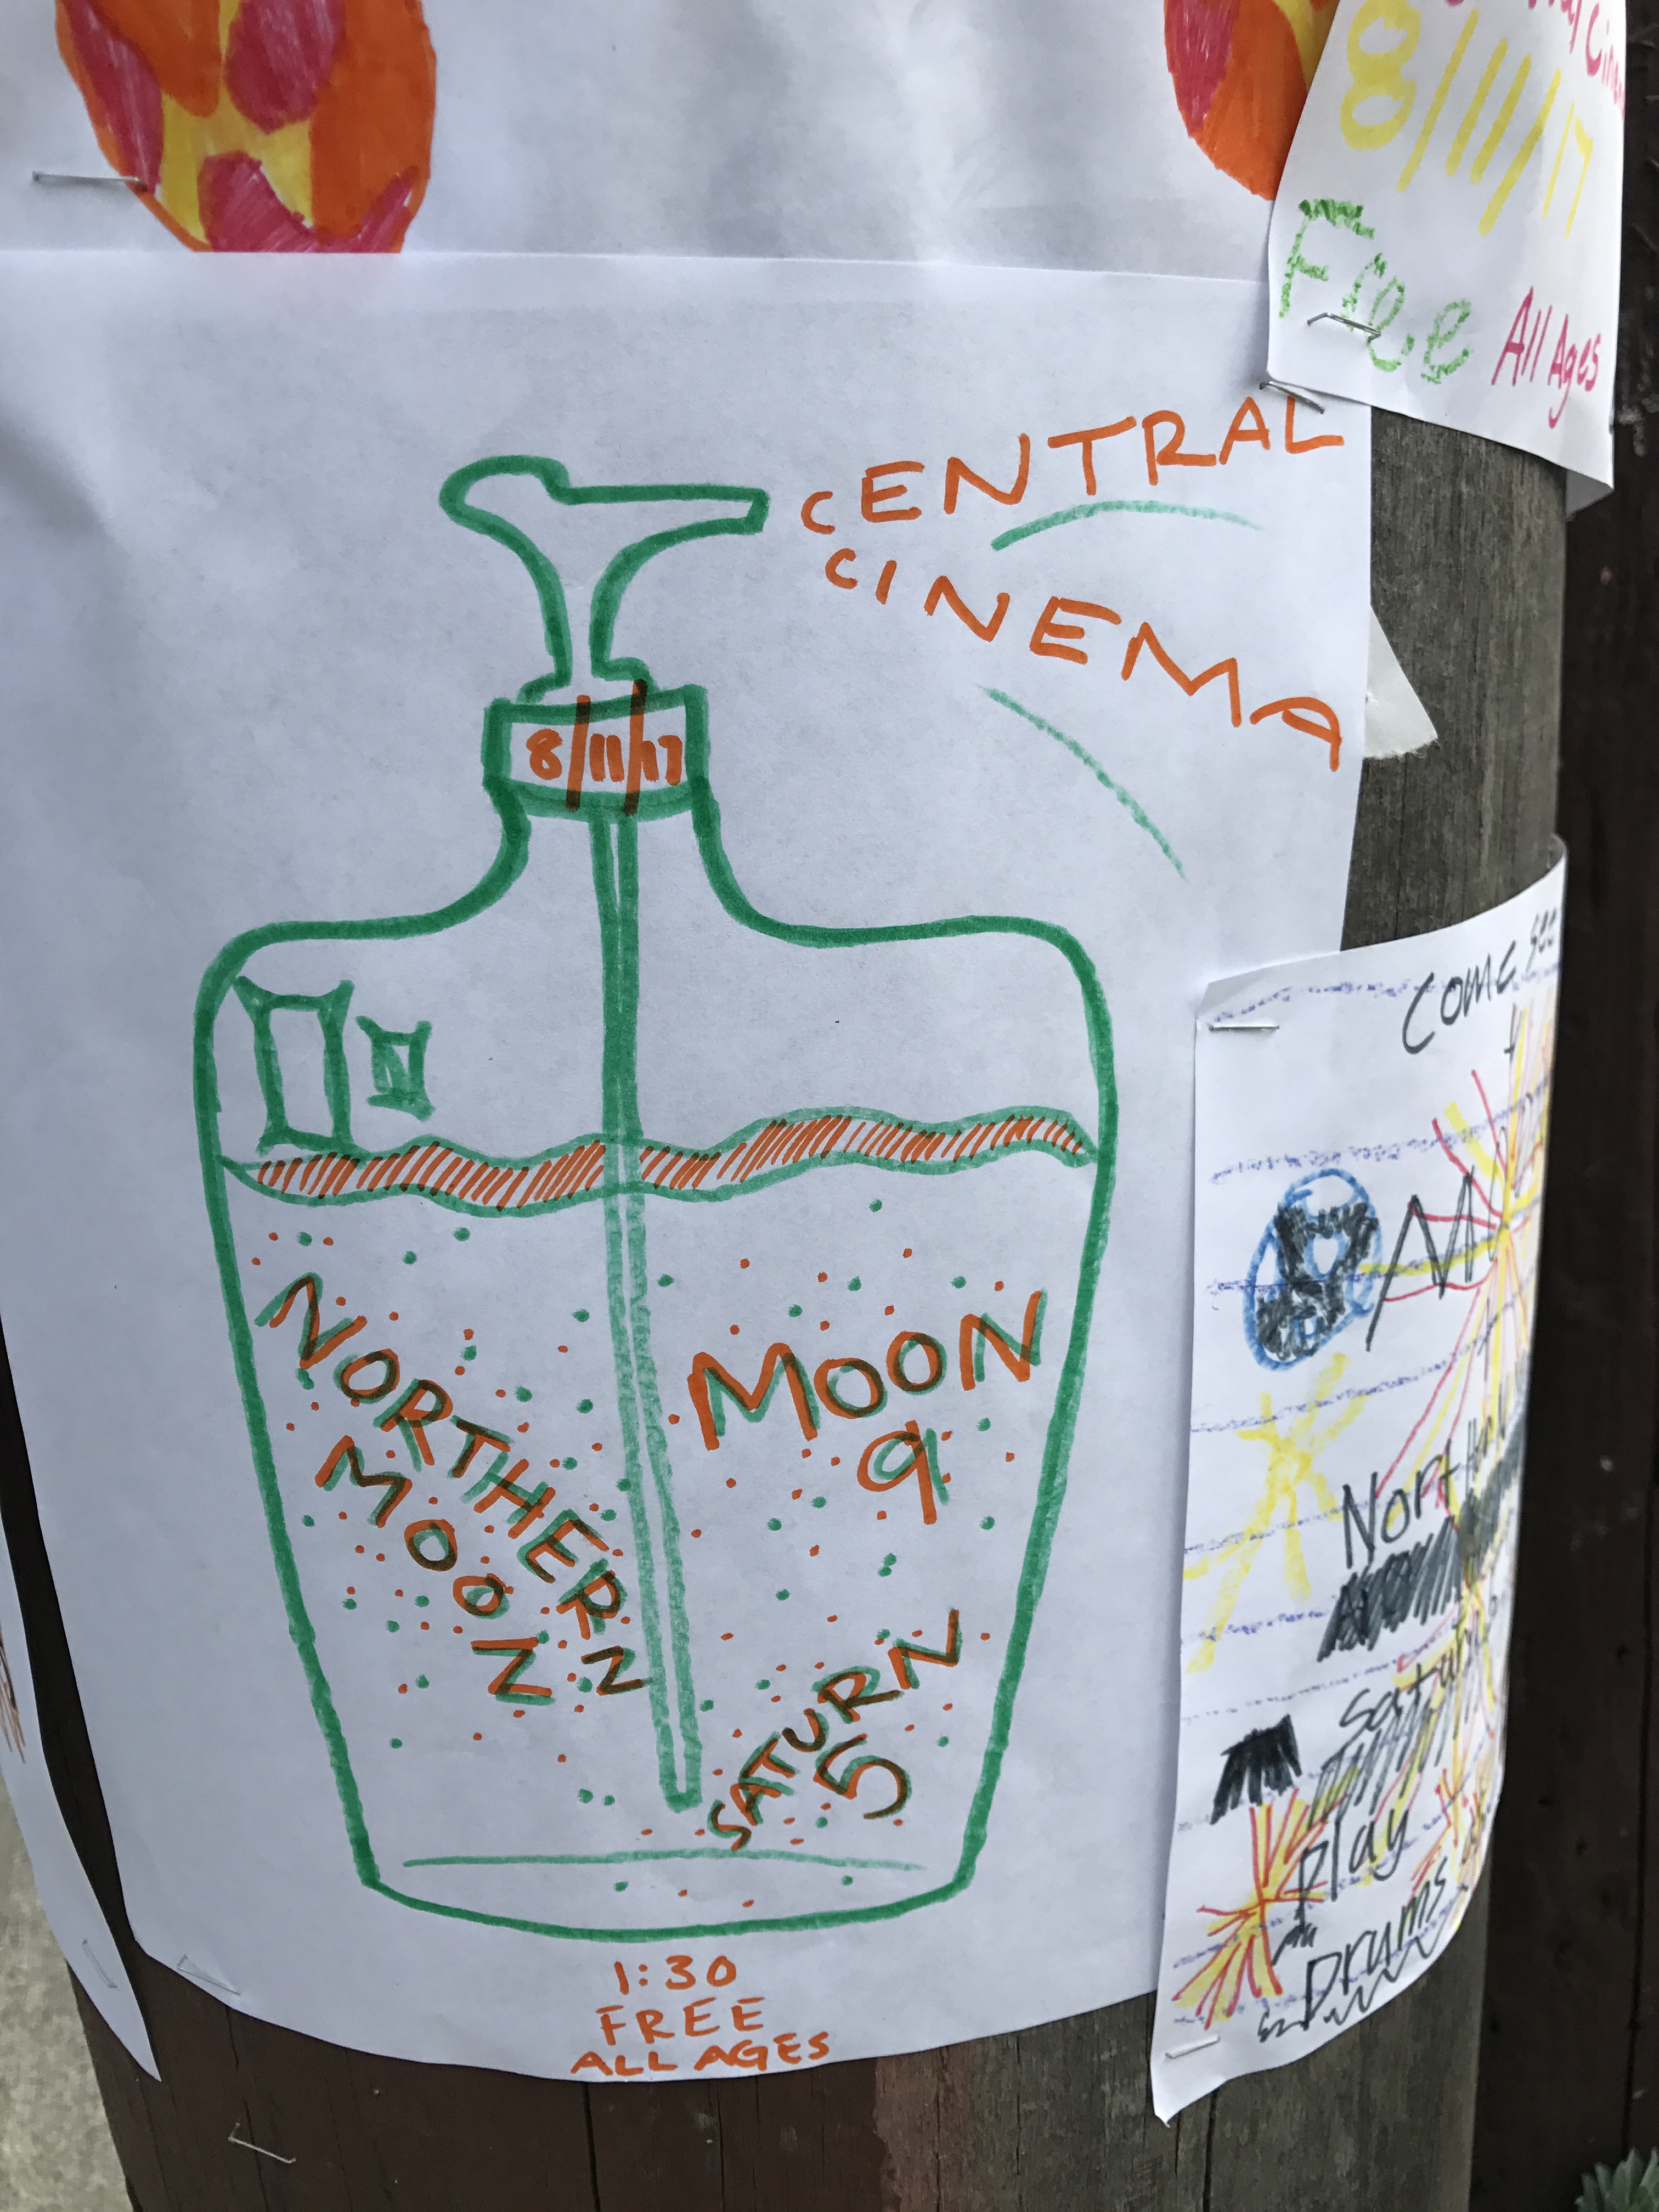 8/11/17
Free All Ages
CENTRAL
CINEMA
8/11/17
NORTHERN
MOON
MOON
9
SATURN
5
1:30
FREE
ALL AGES
Come see
play
Drums